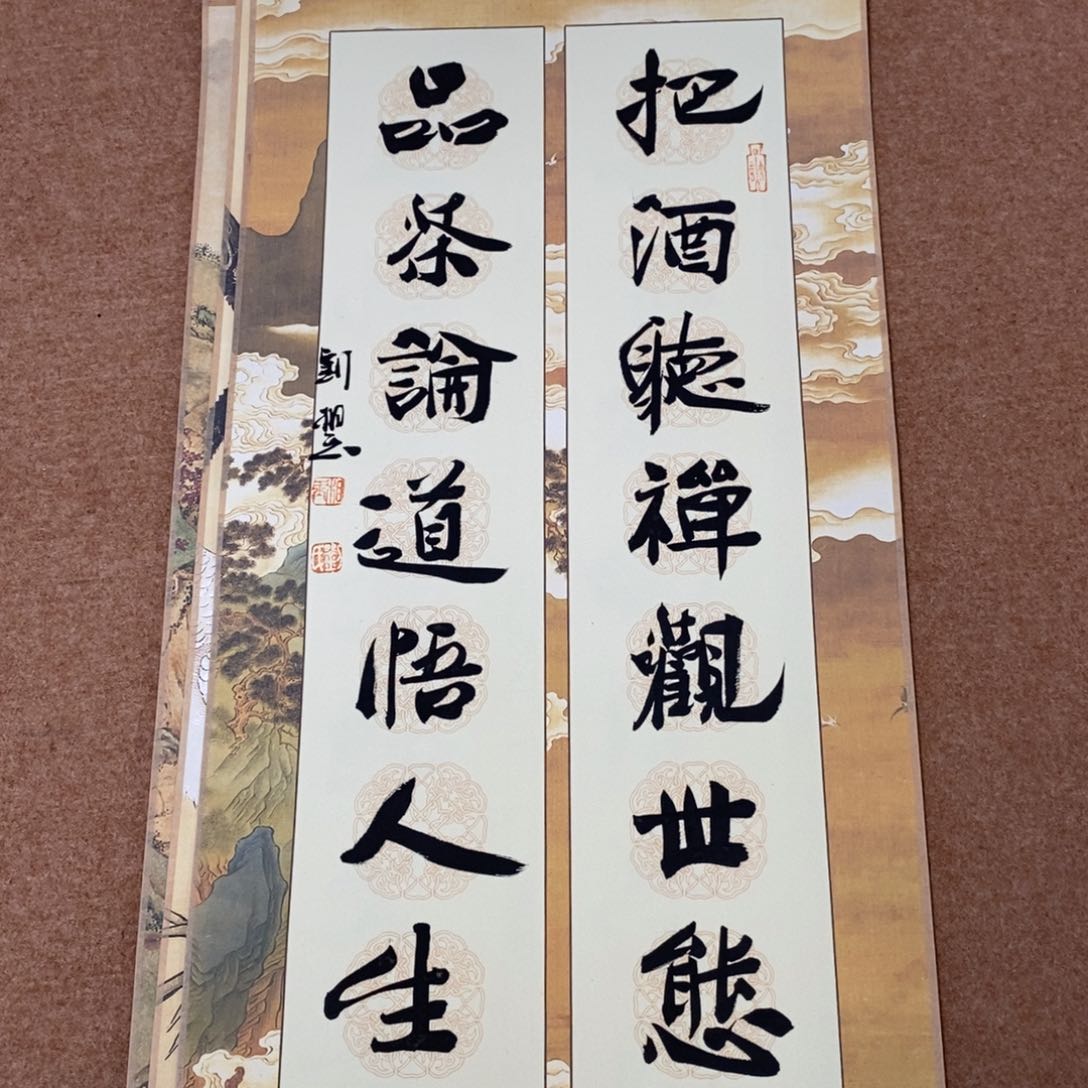 把酒聽禪觀世態
品茶論道悟人生
劉